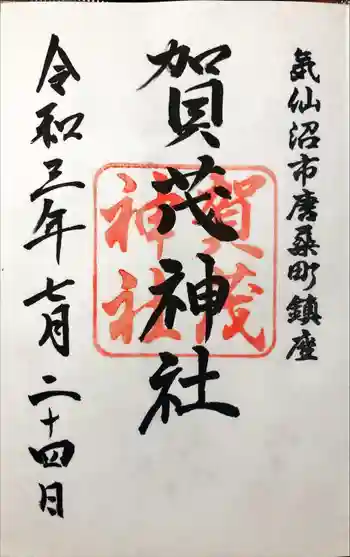 気仙沼市唐桑町鎮座
賀茂神社
賀茂
神社
令和三年七月二十四日